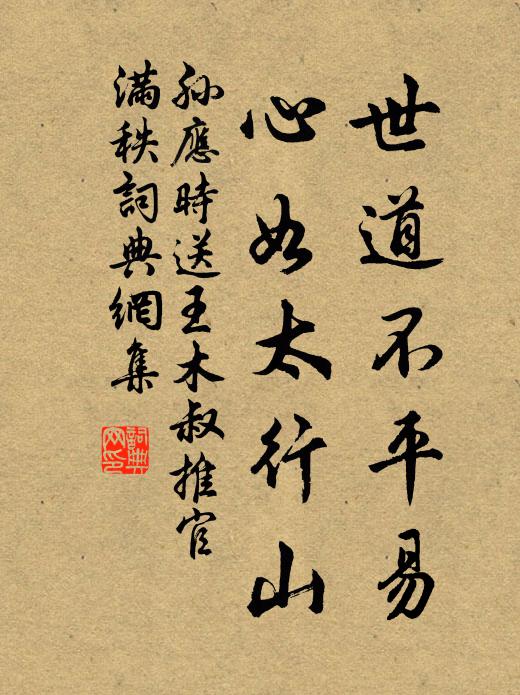 世道不平易
心如太行山
孙應時送王木叔推官
滿秩詞典網集
詞典網印